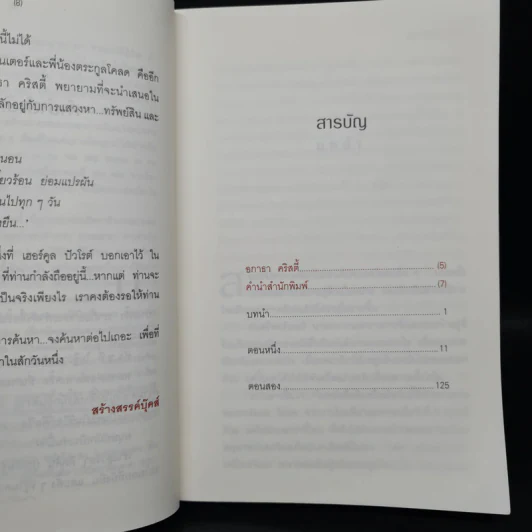 (8)
นี้ไม่ได้
นเตอร์และพี่น้องตระกูลโคลด คืออีก
ธา คริสตี้ พยายามที่จะนำเสนอใน
ลักอยู่กับการแสวงหา...ทรัพย์สิน และ
นอน
ย่อมแปรผัน
นไปทุก ๆ วัน
งยืน..."
ที่ เฮอร์คูล ปัวโรต์ บอกเอาไว้ ใน
ที่ท่านกำลังถืออยู่นี้...หากแต่ ท่านจะ
เป็นจริงเพียงไร เราคงต้องรอให้ท่าน
การค้นหา...จงค้นหาต่อไปเถอะ เพื่อที่
าในสักวันหนึ่ง
สร้างสรรค์บุ๊คส์
สารบัญ
อกาธา คริสตี้ (5)
คำนำสำนักพิมพ์ (7)
บทนำ 1
ตอนหนึ่ง 11
ตอนสอง 125